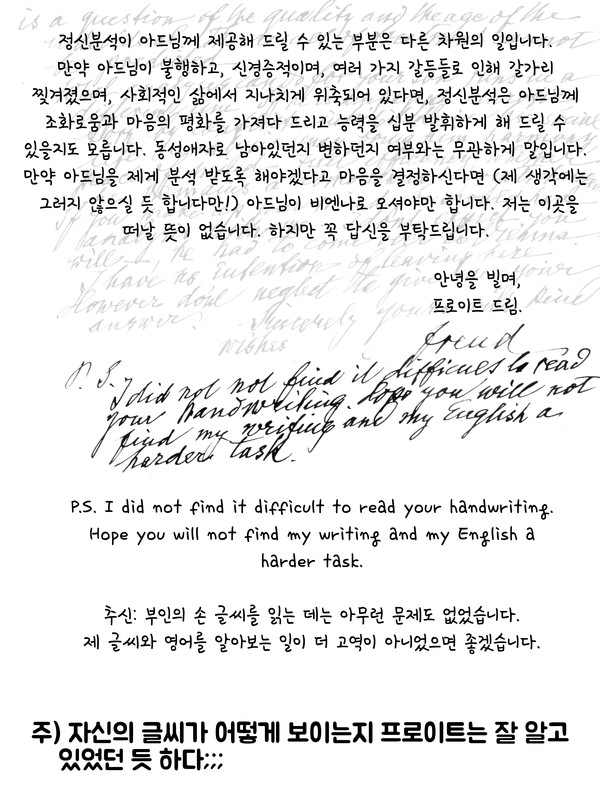 is a question of the quality and the age of the
정신분석이 아드님께 제공해 드릴 수 있는 부분은 다른 차원의 일입니다.
만약 아드님이 불행하고, 신경증적이며, 여러 가지 갈등들로 인해 갈가리
찢겨졌으며, 사회적인 삶에서 지나치게 위축되어 있다면, 정신분석은 아드님께
조화로움과 마음의 평화를 가져다 드리고 능력을 십분 발휘하게 해 드릴 수
있을지도 모릅니다. 동성애자로 남아있던지 변하던지 여부와는 무관하게 말입니다.
만약 아드님을 제게 분석 받도록 해야겠다고 마음을 결정하신다면 (제 생각에는
그러지 않으실 듯 합니다만!) 아드님이 비엔나로 오셔야만 합니다. 저는 이곳을
떠날 뜻이 없습니다. 하지만 꼭 답신을 부탁드립니다.
I have no intention of leaving here.
However don't neglect to give me your
answer.
안녕을 빌며,
프로이트 드림.
Sincerely yours with kind
wishes
freud
P.S. I did not not find it difficult to read
your handwriting. Hope you will not
find my writing and my English a
harder task.
P.S. I did not find it difficult to read your handwriting.
Hope you will not find my writing and my English a
harder task.
추신: 부인의 손 글씨를 읽는 데는 아무런 문제도 없었습니다.
제 글씨와 영어를 알아보는 일이 더 고역이 아니었으면 좋겠습니다.
주) 자신의 글씨가 어떻게 보이는지 프로이트는 잘 알고
있었던 듯 하다;;;